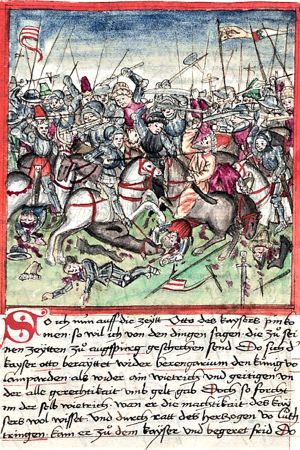 So ich nun auff die zeytt Otto des kaysers pin ko
men so wil ich von den dingen sagen die zů sei
nen zeytten zů augspurg geschechen send Do sich d
kayser otto berayttet wider berengarium den küng vō
lamparden als wider ain wietrich und geitigen vn
der alle gerechtikait umb gelt gab Doch so forcht
im der selb wietrich wan er die machtikait des kay
sers wol wisset und durch ratt des hertzogen vō luth
tringen kam er zů dem kayser und begeret frid Do